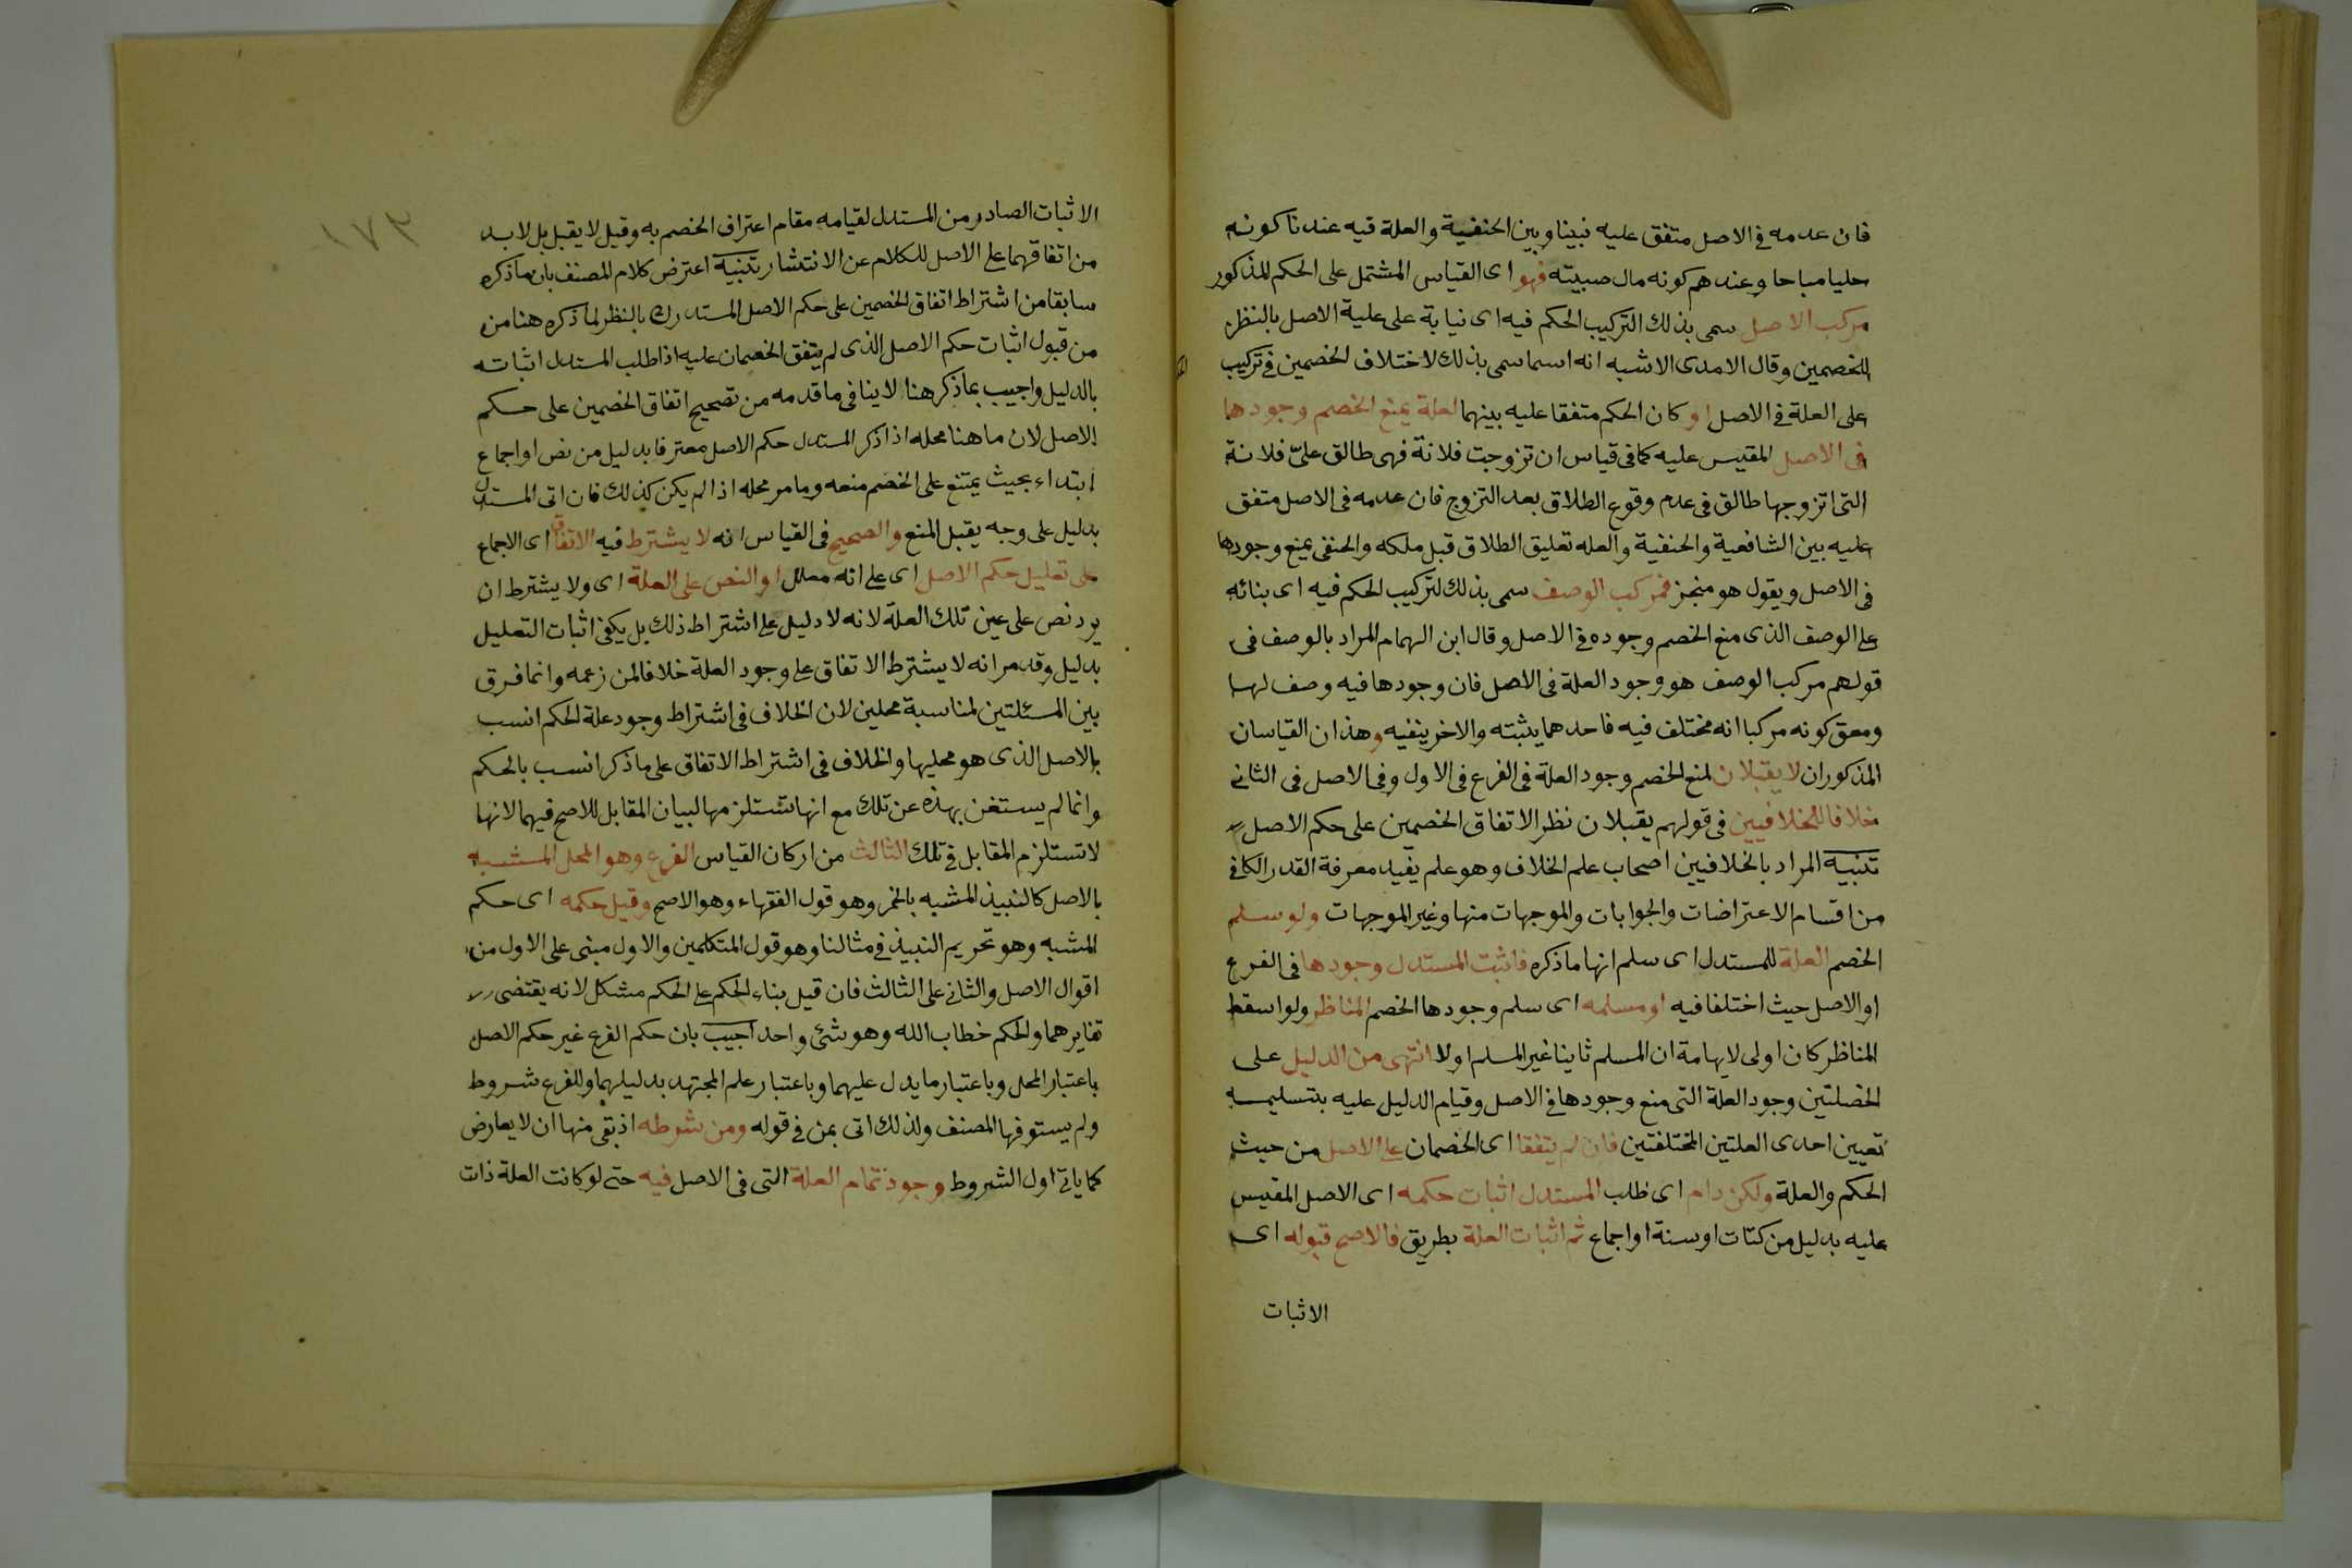 فان عدمه فى الاصل متفق عليه نبينا وبين الحنفية والعلة فيه عندنا كونه
حليا مباحا وعندهم كونه مال صبيته فهو اى القياس المشتمل على الحكم المذكور
مركب الاصل سمى بذلك التركيب الحكم فيه اى نيابة على علية الاصل بالنظر
للخصمين وقال الامدى الاشبه انه اسما سمى بذلك لاختلاف الخصمين فى تركيب
على العلة فى الاصل او كان الحكم متفقا عليه بينهما لعلة يمنع الخصم وجودها
فى الاصل المقيس عليه كما فى قياس ان تزوجت فلانة فهى طالق على فلانة
التى اتزوجها طالق فى عدم وقوع الطلاق بعد التزوج فان عدمه فى الاصل متفق
عليه بين الشافعية والحنفية والعله تعليق الطلاق قبل ملكه والحنفى يمنع وجودها
فى الاصل ويقول هو منجز فمركب الوصف سمى بذلك لتركيب الحكم فيه اى بنائه
على الوصف الذى منع الخصم وجوده فى الاصل وقال ابن الهمام المراد بالوصف فى
قولهم مركب الوصف هو وجود العلة فى الاصل فان وجودها فيه وصف لها
ومعنى كونه مركبا انه مختلف فيه فاحدهما يثبته والاخر ينفيه وهذان القياسان
المذكوران لا يقبلان لمنع الخصم وجود العلة فى الفرع فى الاول وفى الاصل فى الثانى
خلافا للخلافيين فى قولهم يقبلان نظر الاتفاق الخصمين على حكم الاصل
تنبيه المراد بالخلافيين اصحاب علم الخلاف وهو علم يفيد معرفة القدر الكافى
من اقسام الاعتراضات والجوابات والموجهات منها وغير الموجهات ولو سلم
الخصم العلة للمستدل اى سلم انها ما ذكره فاثبت المستدل وجودها فى الفرع
او الاصل حيث اختلفا فيه او مسلمه اى سلم وجودها الخصم المناظر ولو اسقط
المناظر كان اولى لايهامة ان المسلم ثانيا غير المسلم اولا انتهى من الدليل على
الخصلتين وجود العلة التى منع وجودها فى الاصل وقيام الدليل عليه بتسليمه
تعيين احدى العلتين المختلفتين فان لم يتفقا اى الخصمان على الاصل من حيث
الحكم والعلة ولكن رام اى طلب المستدل اثبات حكمه اى الاصل المقيس
عليه بدليل من كتات او سنة او اجماع ثم اثبات العلة بطريق فالاصح قبوله اى
الاثبات
١٧٣
الاثبات الصادر من المستدل لقيامه مقام اعتراف الخصم به وقيل لا يقبل بل لا بد
من اتفاقهما على الاصل للكلام عن الانتشار تنبيه اعترض كلام المصنف بان ما ذكره
سابقا من اشتراط اتفاق الخصمين على حكم الاصل المستدرك بالنظر لما ذكره هنا من
من قبول اثبات حكم الاصل الذى لم يتفق الخصمان عليه اذا طلب المستدل اثباته
بالدليل واجيب بما ذكر هنا لا ينافى ما قدمه من تصحيح اتفاق الخصمين على حكم
الاصل لان ما هنا محله اذا ذكر المستدل حكم الاصل معترفا بدليل من نص او اجماع
ابتداء بحيث يمتنع على الخصم منعه وما مر محله اذا لم يكن كذلك فان اتى المستدل
بدليل على وجه يقبل المنع والصحيح فى القياس انه لا يشترط فيه الاتفاق اى الاجماع
على تعليل حكم الاصل اى على انه معلل او النص على العلة اى ولا يشترط ان
يرد نص على عين تلك العلة لانه لا دليل على اشتراط ذلك بل يكفى اثبات التعليل
بدليل وقد مر انه لا يشترط الاتفاق على وجود العلة خلافا لمن زعمه وانما فرق
بين المسئلتين لمناسبة محلين لان الخلاف فى اشتراط وجود علة الحكم انسب
بالاصل الذى هو محليها والخلاف فى اشتراط الاتفاق على ما ذكر انسب بالحكم
وانما لم يستغن بهذه عن تلك مع انها تستلزمها لبيان المقابل للاصح فيهما لانها
لا تستلزم المقابل فى تلك الثالث من اركان القياس الفرع وهو المحل المشبه
بالاصل كالنبيذ المشبه بالخمر وهو قول الفقهاء وهو الاصح وقيل حكمه اى حكم
المشبه وهو تحريم النبيذ فى مثالنا وهو قول المتكلمين والاول مبنى على الاول من
اقوال الاصل والثانى على الثالث فان قيل بناء الحكم على الحكم مشكل لانه يقتضى
تغايرهما والحكم خطاب الله وهو شئ واحد اجيب بان حكم الفرع غير حكم الاصل
باعتبار المحل وباعتبار ما يدل عليهما وباعتبار علم المجتهد بدليلهما وللفرع شروط
ولم يستوفها المصنف ولذلك اتى بمن فى قوله ومن شوطه اذ بقى منها ان لا يعارض
كما ياتى اول الشروط وجود تمام العلة التى فى الاصل فيه حتى لو كانت العلة ذات